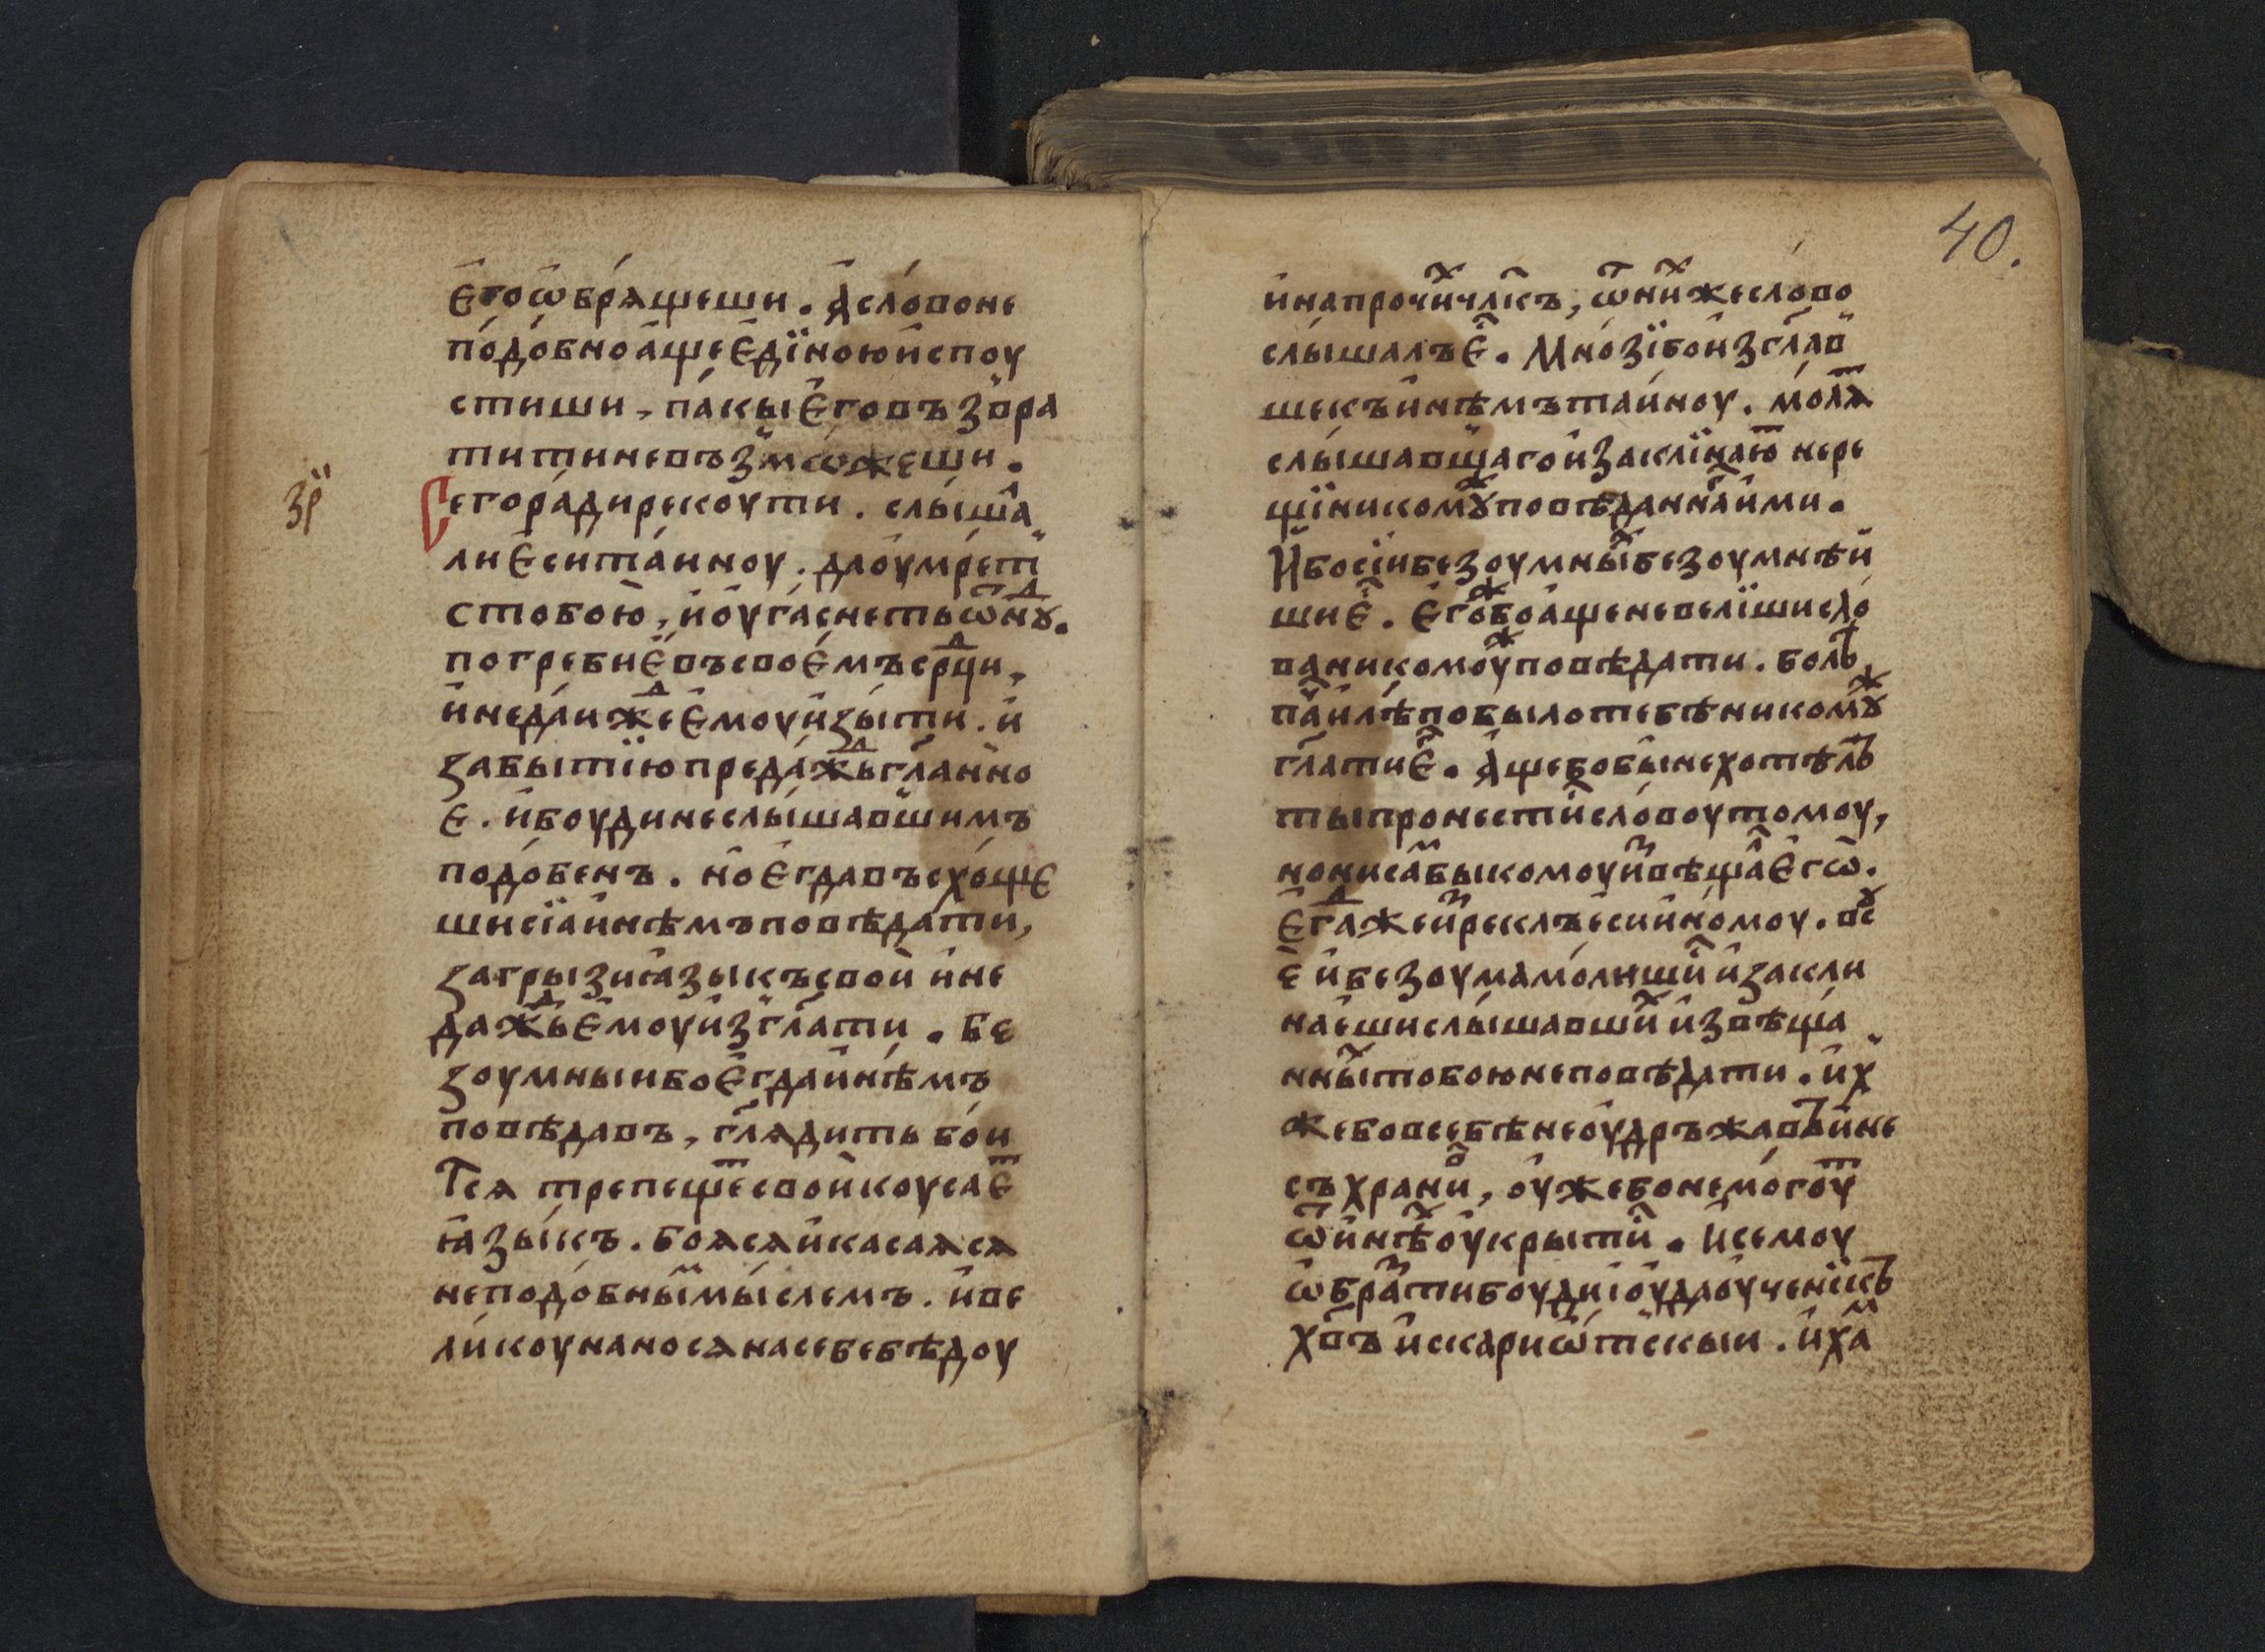 є҆гоѡ҆брѧщеши . а҆словоне
подобноа҆щеє҆дїноюи҆споу
стиши , пакыє҆говъзвра
титиневъзⸯмѡжеши .
зрⸯ
Сегорадирекоути . слышаⷧ҇
лиє҆ситаинноу . даоу҆мретⸯ
стобою , и҆оу҆гаснетьѿнꙋⷣ .
погребиє҆въсвоє҆мъсрⷣци ,
и҆недаиждⷣеє҆моуи҆зыти . и҆
забытїюпредажⷣьгл҃анно
є . и҆боудинеслышавⸯшимъ
подобенъ . но є҆гдавъсхоще
шисїаи҆нѣмъповѣдати ,
загрызиꙗзыкъсвои҆ и҆не
дажⷣьє҆моуи҆зⸯгл҃ати . бе
зоумныибоє҆гдаи҆нѣмъ
повѣдавъ , глѧдитьбои
Тсѧ трепещеⷮсвои҆коусаєⷮ
ꙗзыкъ . боѧсѧи҆касаѧсѧ
неподобныⷨмыслемъ . и҆ве
ликоунаносѧнасебебѣдоу
40.
и҆напрочиⷯчл҃къ , ѿниⷯжеслово
слышалъєⷭ҇ . Мнозїбои҆згл҃авⸯ
шекъи҆нѣмътаиноу . молѧⷮ
слышавⸯщагои҆заклїнаюⷮ нере
щїникомꙋⷤповѣданнаⷭ҇ими .
И҆босїибезоумныⷯбезоумнѣи҆
шиєⷭ҇ . є҆гоⷤбоа҆щеневелїшисло
ваникомоуⷤповѣдати . болⸯ
паⷱ҇илѣпобылотебѣникомꙋⷤ
гл҃атиєⷢ҇ . А҆щебобынехотѣлъ
тыпронестиⷭ҇словоутомоу ,
нонисаⷨбыкомоуи҆ⷥвѣщаⷧ҇є҆гѡ .
є҆гⷣажеиⷥреклъє҆сии҆номоу . всꙋ
є и҆безоумамолишиⷭ҇ и҆закли
наєшислышавшиⷯ и҆звѣща
нныⷯтобоюнеповѣдати . и҆хⸯ
жебовсебѣнеоу҆државъи҆не
съхраниⷡ҇ , оу҆жебонемогоуⷮ
ѿи҆нѣⷯоу҆крытиⷭ҇ . И҆семоу
ѡ҆браⷥтибоудиіоу҆даоу҆ченїкъ
хв҃ъ и҆скариѡ҆тⸯскыи . и҆хаⷨ